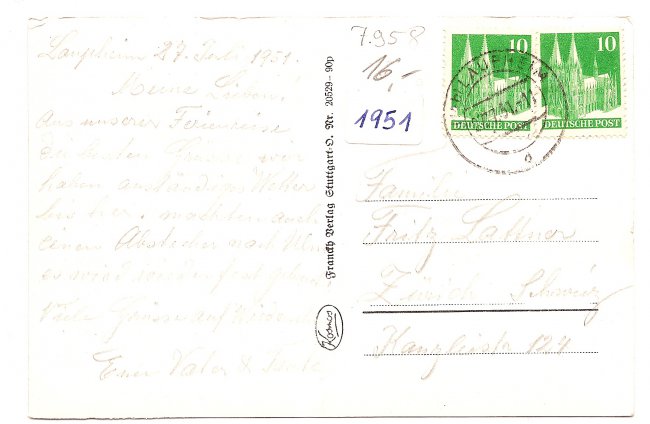 Laupheim 27. Juli 1951.
Meine Lieben!
Aus unserer Ferienreise
die besten Grüsse, wir
haben anständiges Wetter
bis hier, machten auch
einen Abstecher nach Ulm
es wird
Viele Grüsse auf Wiederseh
Euer Vater & Tante
Franckh Verlag Stuttgart-O. Nr. 20529 - 90p
Kosmos
7.958
16,-
1951
10
DEUTSCHE POST
10
DEUTSCHE POST
Familie
Fritz Lattner
Zürich Schweiz
Kanzleistr 124